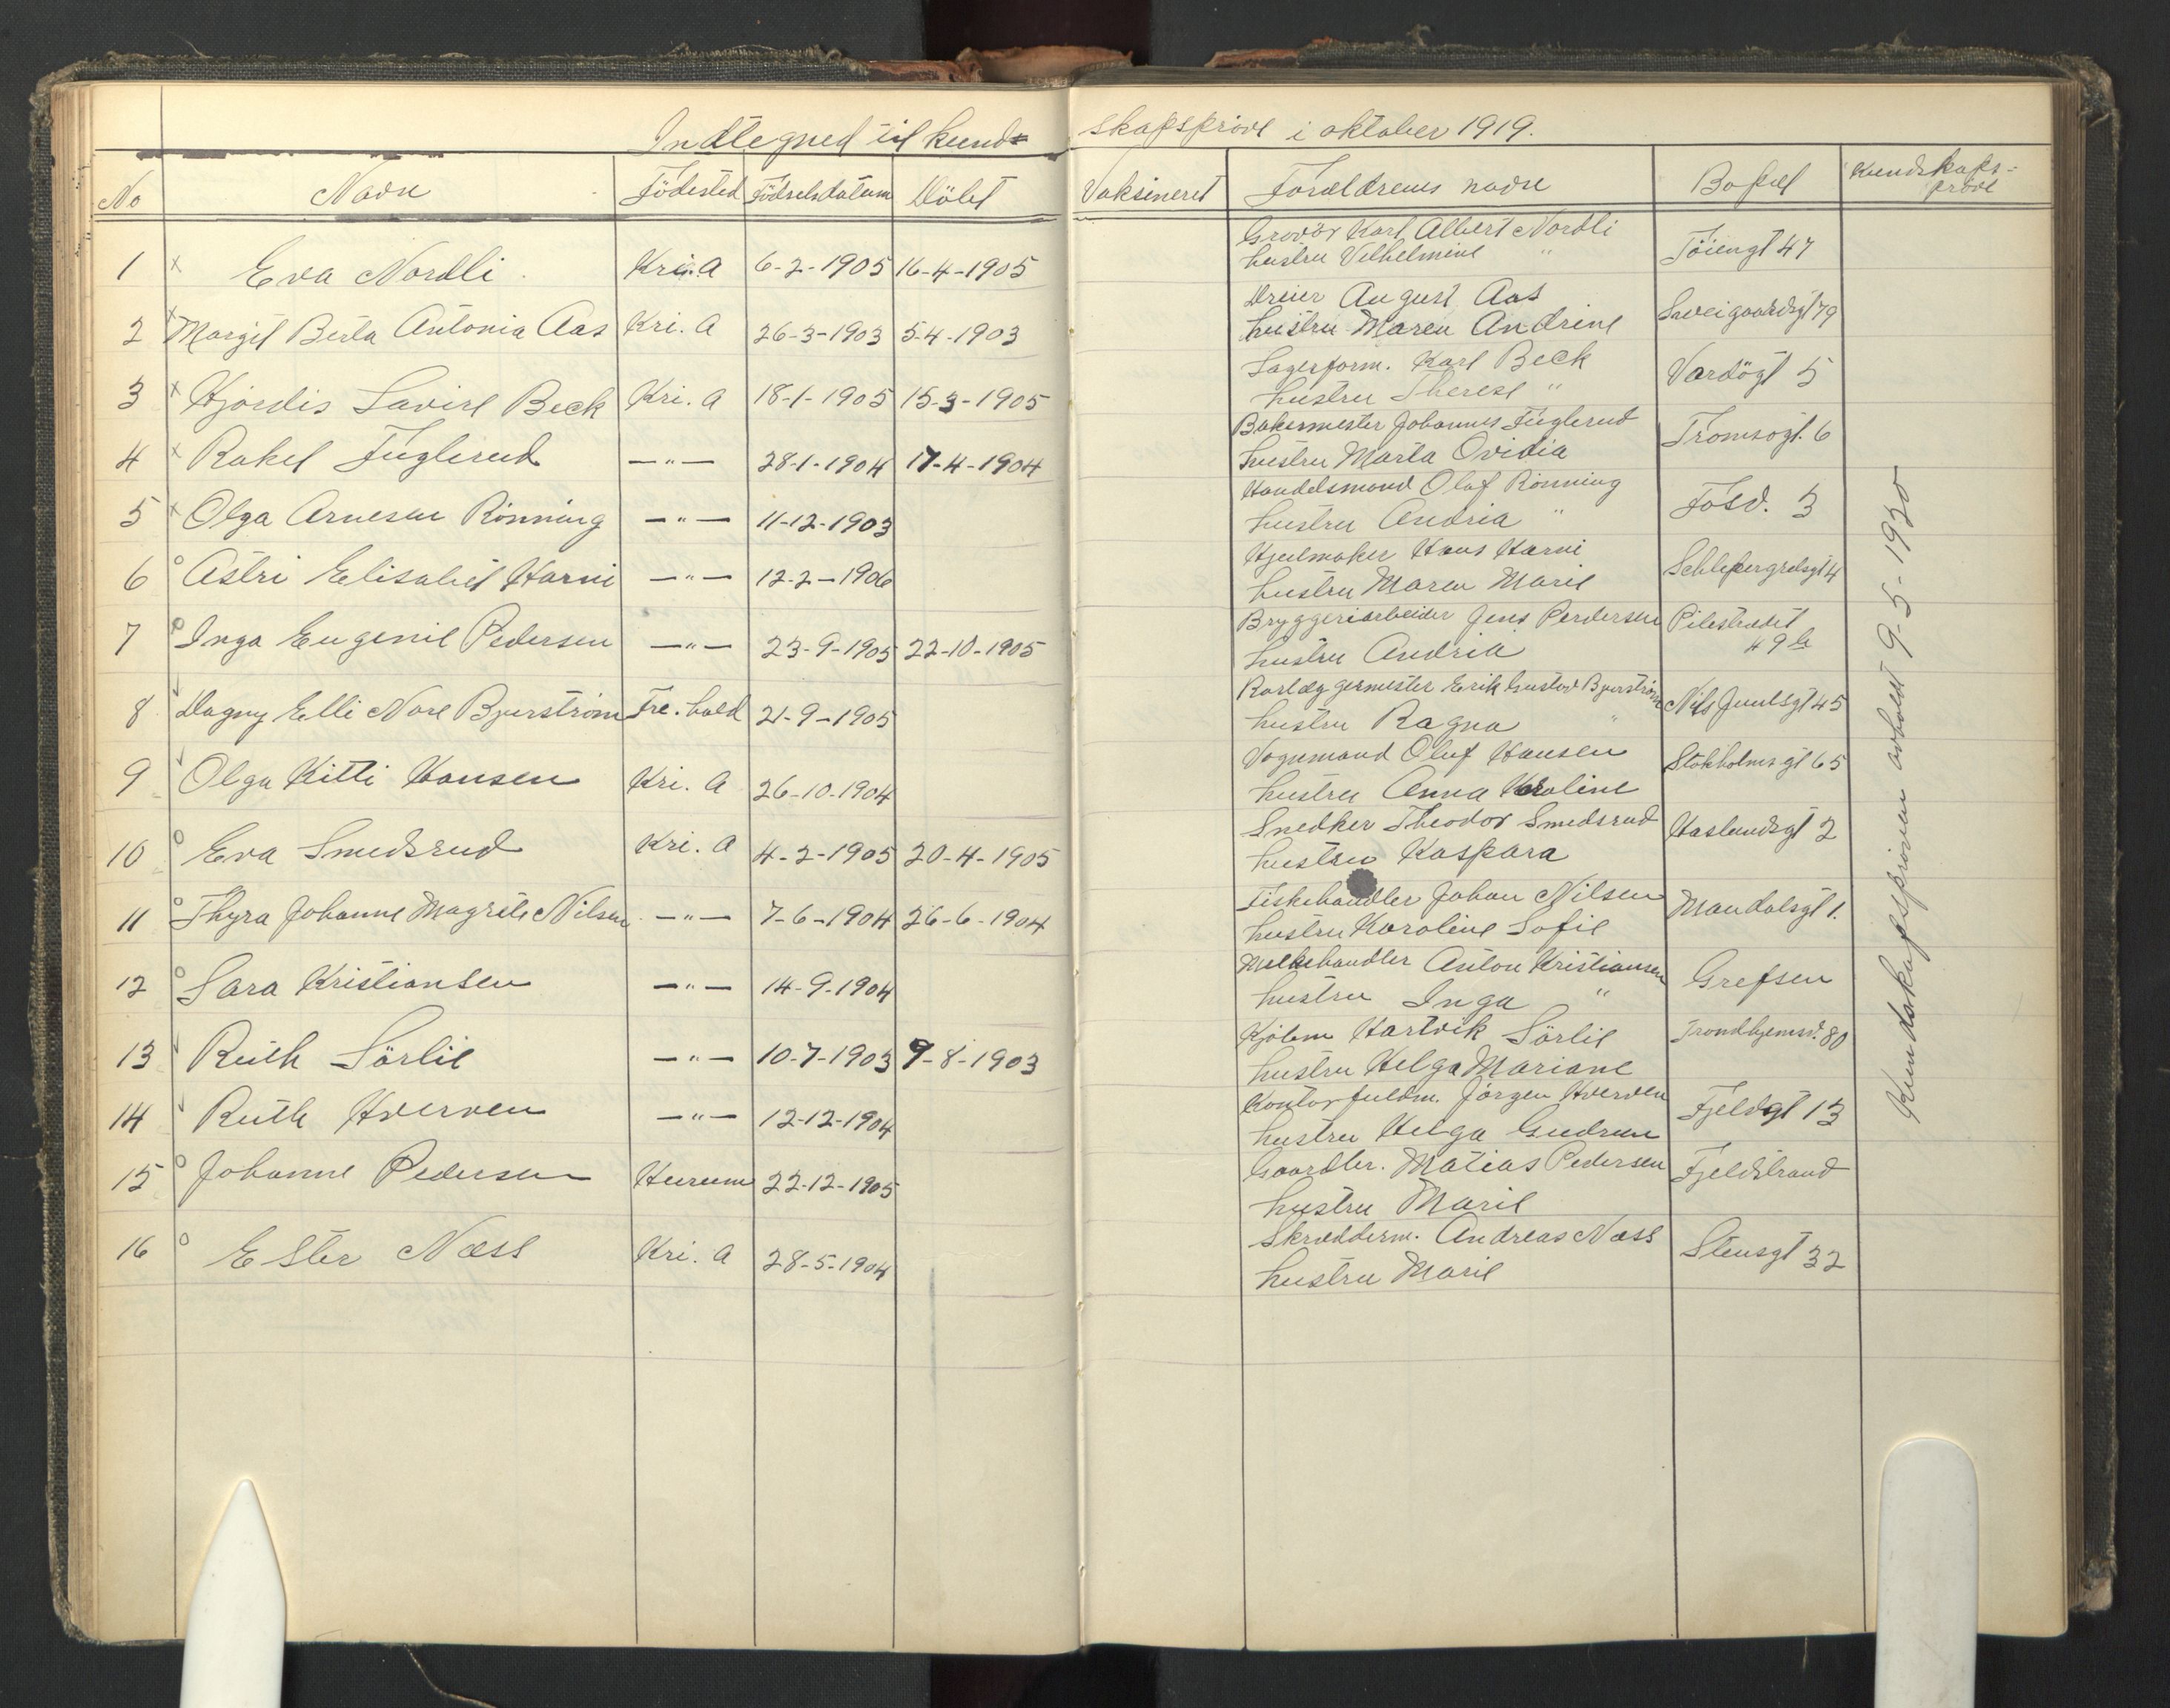 Indtegned til kund-
skapsprøve i oktober 1919.
No Navn Födested Födselsdatum Döbt Vaksineret Forældrenes navne Bopæl Kundskaps-
prøve
1 x Eva Nordli Kri.a 6-2-1905 16-4-1905 Gravör Karl Albert Nordli Töiengt 47
hustru Vilhelmine "
2 x Margit Berta Antonia Aas Kri. a 26-3-1903 5-4-1903 Dreier August Aas Sweigaardsgt 79
hustru Maren Andrine
3 x Hjördis Lovise Beck Kri. a 18-1-1905 15-3-1905 Lagerform. Karl Beck Vardögt 5
hustru Therese "
4 x Rakel Fuglerud —"— 28-1-1904 17-4-1904 Bakermester Johannes Fuglerud Tromsögt. 6
hustru Marta Ovidia
5 x Olga Arnesen Rönning —"— 11-12-1903 Handelsmand Olaf Rönning Fosv. 3
hustru Andria "
6 o Astri Elisabet Harni —"— 12-2-1906 Hjulmaker Hans Harni Schleppegrelsgt 4
hustru Maren Marie
7 o Inga Eugenie Pedersen —"— 23-9-1905 22-10-1905 Bryggeriarbeider Jens Perdersen Pilestrædet
49 b
hustru Andria
8 Dagny Elli Nore Bjurström Fre.hald 21-9-1905 Rörlæggermester Erik Gustav Bjurström Nils Juulsgt 45
hustru Ragna "
9 Olga Kitti Hansen Kri. a 26-10-1904 Vognmand Oluf Hansen Stokholmsgt 65
hustru Anna Karoline
10 o Eva Smedsrud Kri. a 4-2-1905 20-4-1905 Snedker Theodor Smedsrud Haslundsgt 2
hustru Kaspara
11 o Thyra Johanne Magrete Nilsen —"— 7-6-1904 26-6-1904 Fiskehandler Johan Nilsen Mandalsgt 1.
hustru Karoline Sofie
12 o Sara Kristiansen —"— 14-9-1904 Melkehandler Anton Kristiansen Grefsen
hustru Inga "
13 Ruth Sörlie —"— 10-7-1903 9-8-1903 Kjölem Hartvik Sörlie Trondhjemsv. 80
hustru Helga Mariane
14 Ruth Hverven —"— 12-12-1904 Kontorfuldm. Jörgen Hverven Fjeldgt 13
hustru Helga Gudrun
15 o Johanne Pedersen Hurum 22-12-1905 Gaardbr. Matias Pedersen Fjeldstrand
hustru Marie
16 o Ester Næss Kri. a 28-5-1904 Skrædderm. Andreas Næss Stensgt 32
hustru Marie
Kundskapsprøven avholdt 9-5-1920